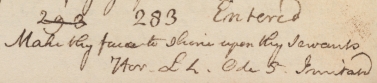 293 283 Entered
Make thy face to Shine upon thy Servants
Hor. L. 4. Ode 5. Imitated